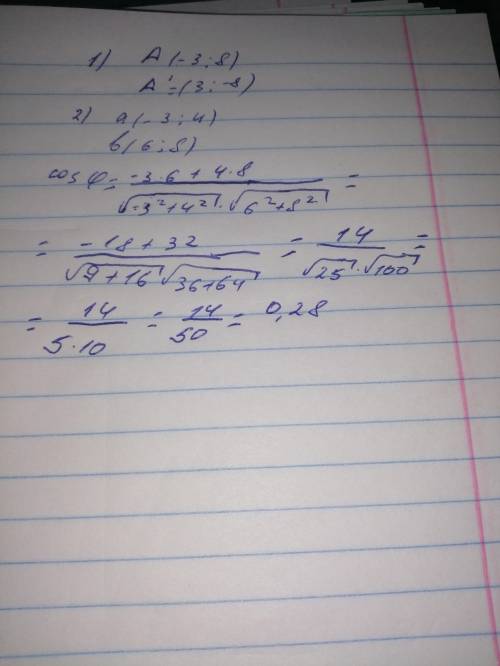 1) A (-3 ; 8)
A' = (3 ; -8)
2) a (-3 ; 4)
b (6 ; 8)
cos φ = (-3·6 + 4·8) / (√(-3² + 4²) · √(6² + 8²)) =
= (-18 + 32) / (√(9 + 16) √(36 + 64)) = 14 / (√25 · √100) =
= 14 / (5·10) = 14/50 = 0,28